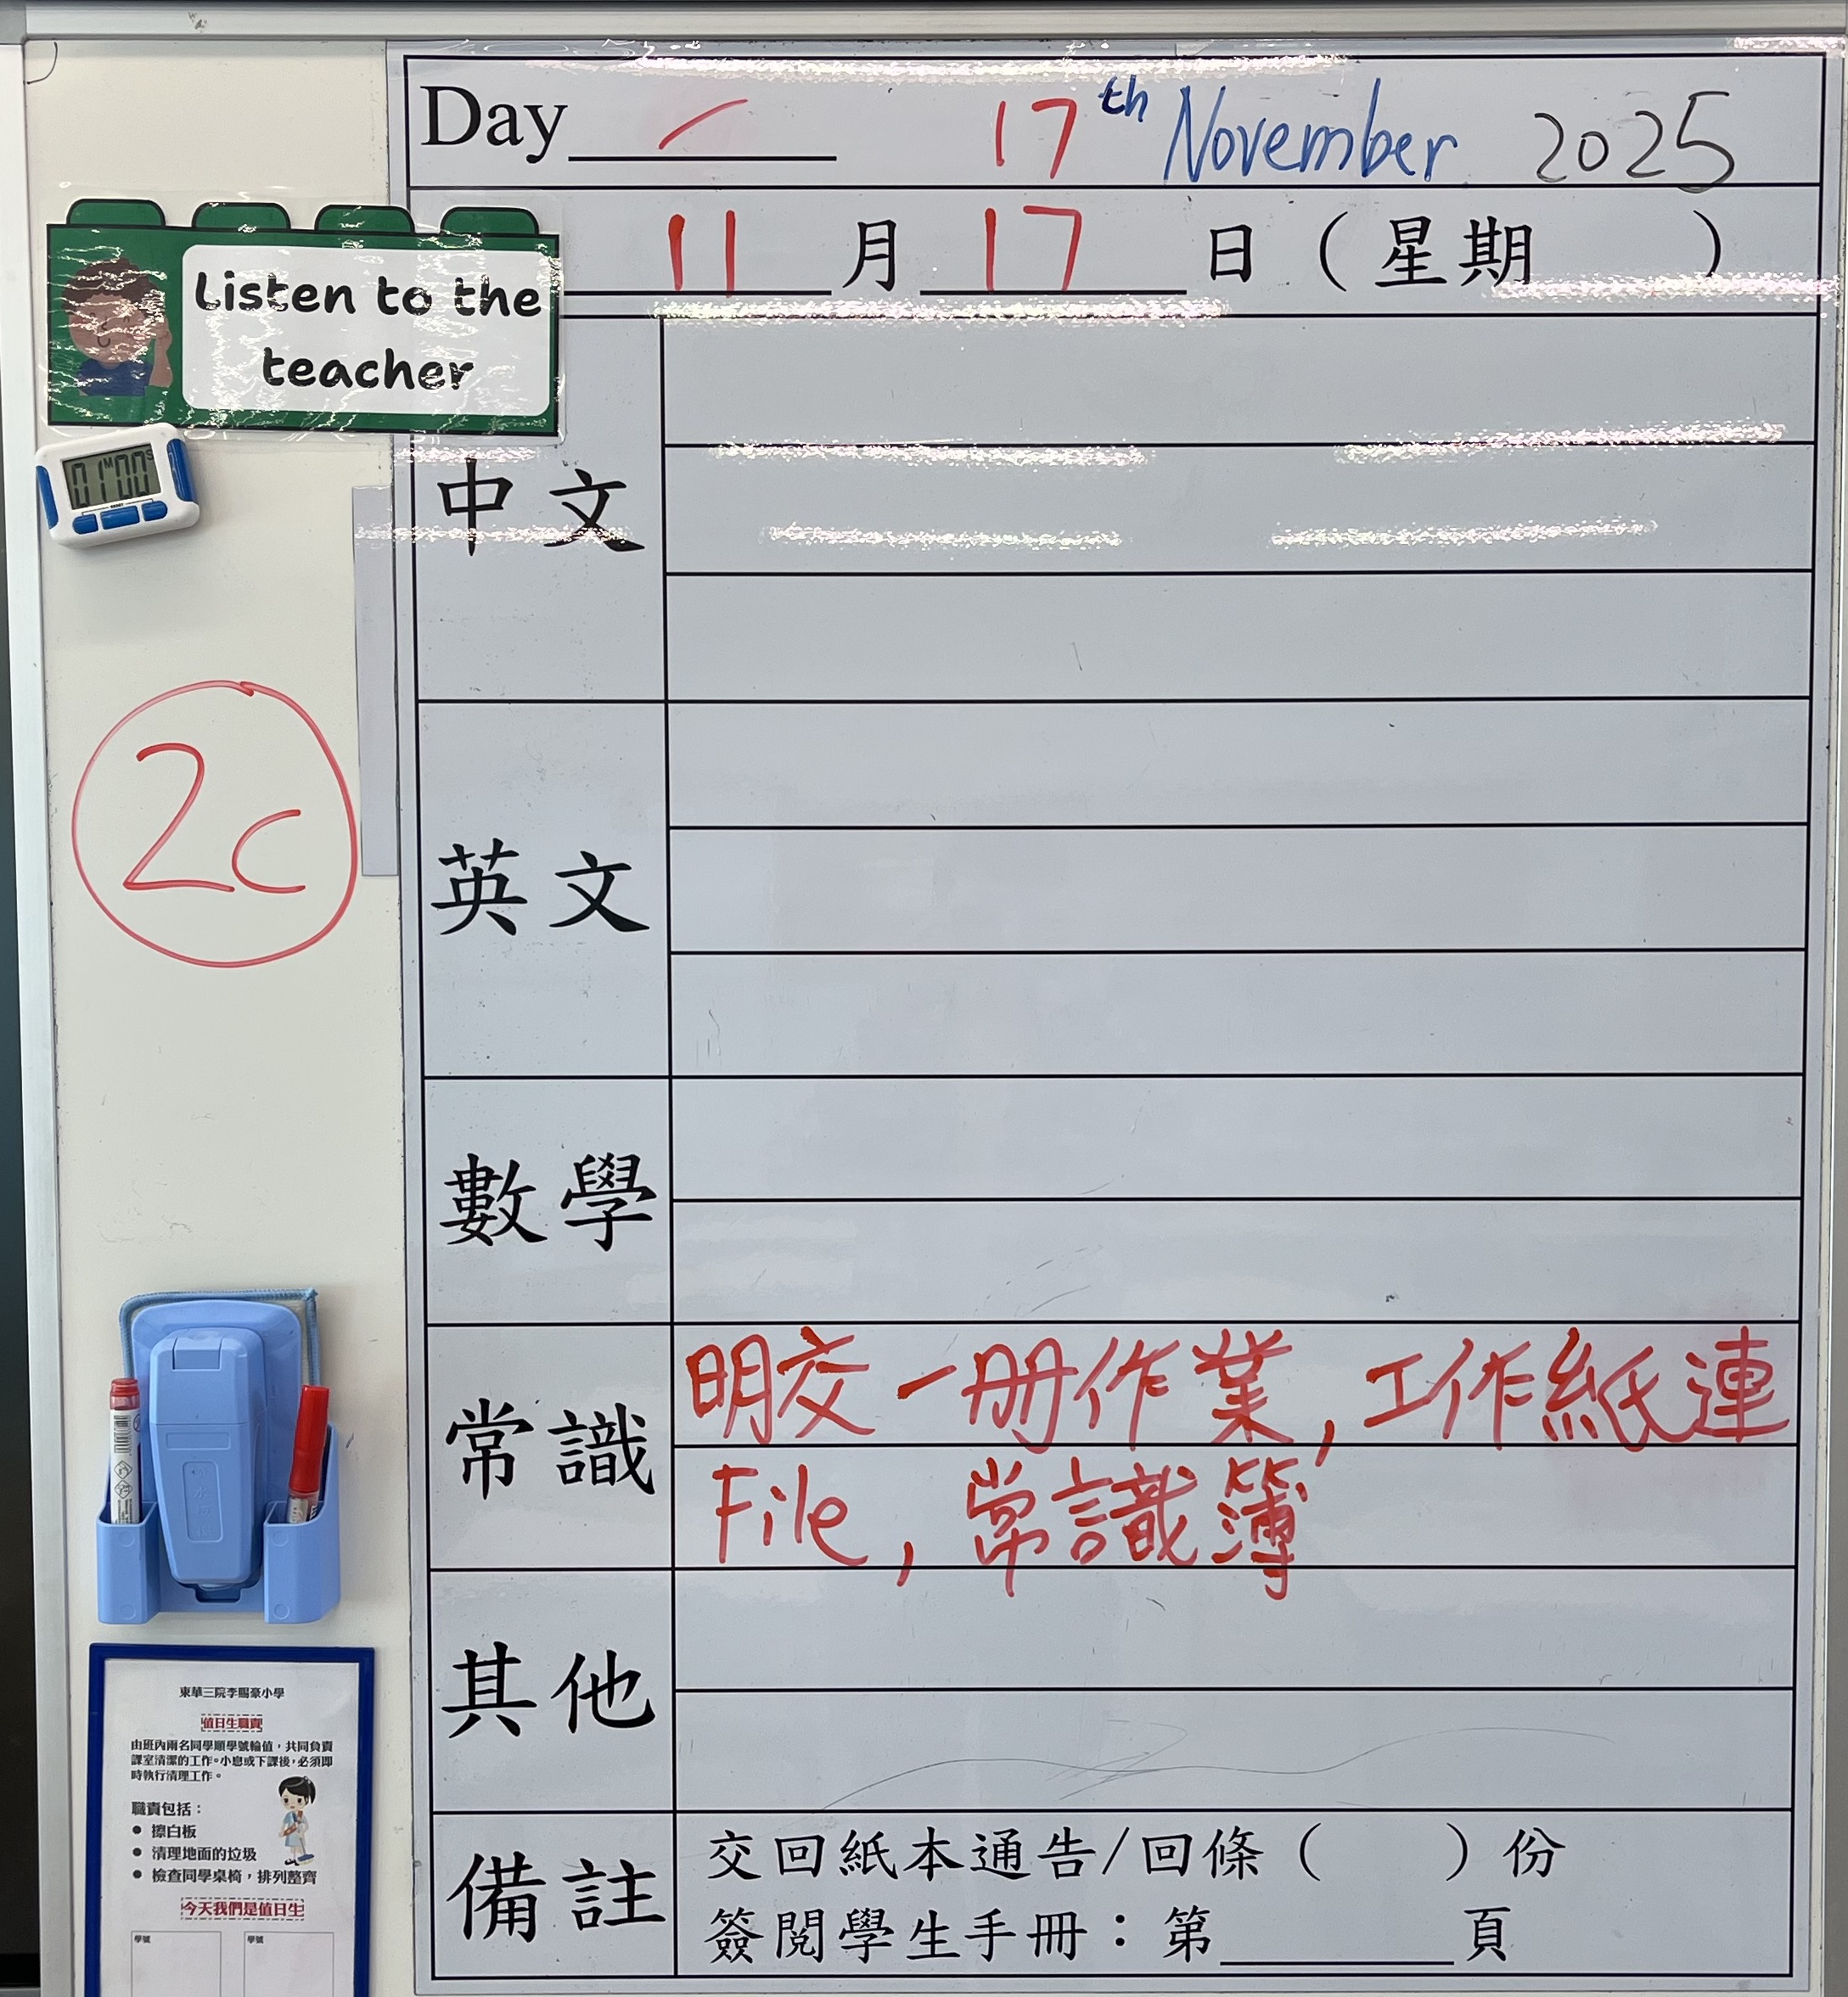 Day / 17th November 2025
11月17日（星期　　）
Listen to the
teacher
01 M 00 S
中文
2c
英文
數學
常識
明交一冊作業, 工作紙連
File, 常識簿
其他
備註
交回紙本通告/回條（　　）份
簽閱學生手冊：第______頁
東華三院李賜豪小學
值日生職責
由班內兩名同學順學號輪值，共同負責
課室清潔的工作。小息或下課後，必須即
時執行清理工作。
職責包括：
● 擦白板
● 清理地面的垃圾
● 檢查同學桌椅，排列整齊
今天我們是值日生
學號 學號